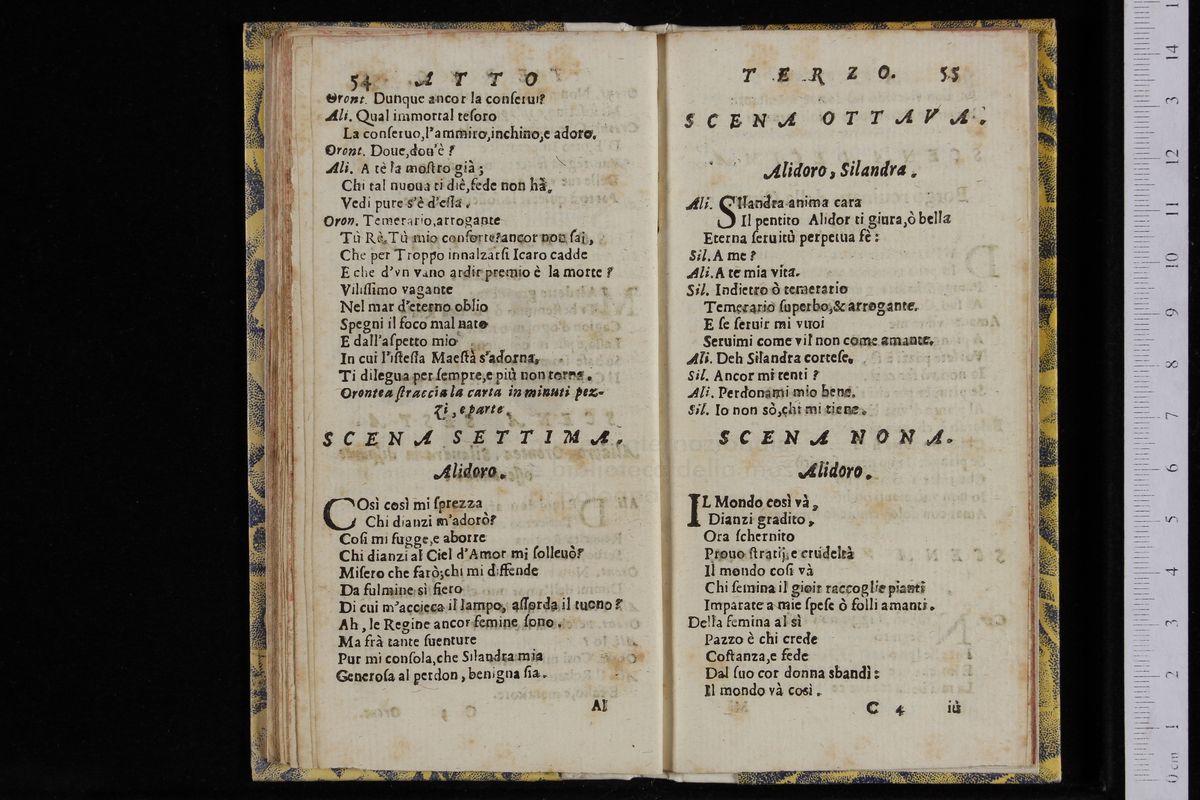 54 ATTO
Oront. Dunque ancor la conserui?
Ali. Qual immortal tesoro
La conseruo,l'ammiro,inchino,e adoro.
Oront. Doue,dou'è ?
Ali. A tè la mostro già;
Chi tal nuoua ti diè,fede non hà.
Vedi pure s'è d'essa.
Oron. Temerario,arrogante
Tù Rè.Tù mio consorte?ancor non sai,
Che per Troppo innalzarsi Icaro cadde
E che d'vn vano ardir premio è la morte ?
Vilissimo vagante
Nel mar d'eterno oblio
Spegni il foco mal nato
E dall'aspetto mio
In cui l'istessa Maestà s'adorna,
Ti dilegua per sempre,e più non torna.
Orontea straccia la carta in minuti pez-
zi, e parte.
SCENA SETTIMA.
Alidoro.
COsì così mi sprezza
Chi dianzi m'adorò?
Così mi fugge,e aborre
Chi dianzi al Ciel d'Amor mi solleuò?
Misero che farò;chi mi diffende
Da fulmine sì fiero
Di cui m'accieca il lampo, assorda il tuono ?
Ah, le Regine ancor femine sono.
Ma frà tante suenture
Pur mi consola,che Silandra mia
Generosa al perdon, benigna sia.
Al
TERZO. 55
SCENA OTTAVA.
Alidoro, Silandra.
Ali. SIlandra anima cara
Il pentito Alidor ti giura,ò bella
Eterna seruitù perpetua fè:
Sil. A me ?
Ali. A te mia vita.
Sil. Indietro ò temerario
Temerario superbo,& arrogante.
E se seruir mi vuoi
Seruimi come vil non come amante.
Ali. Deh Silandra cortese.
Sil. Ancor mi tenti ?
Ali. Perdonami mio bene.
Sil. Io non sò,chi mi tiene.
SCENA NONA.
Alidoro.
IL Mondo così và,
Dianzi gradito,
Ora schernito
Prouo stratij,e crudeltà
Il mondo così và
Chi semina il gioir raccoglie pianti
Imparate a mie spese ò folli amanti.
Della femina al sì
Pazzo è chi crede
Costanza,e fede
Dal suo cor donna sbandì:
Il mondo và così.
C 4 iù